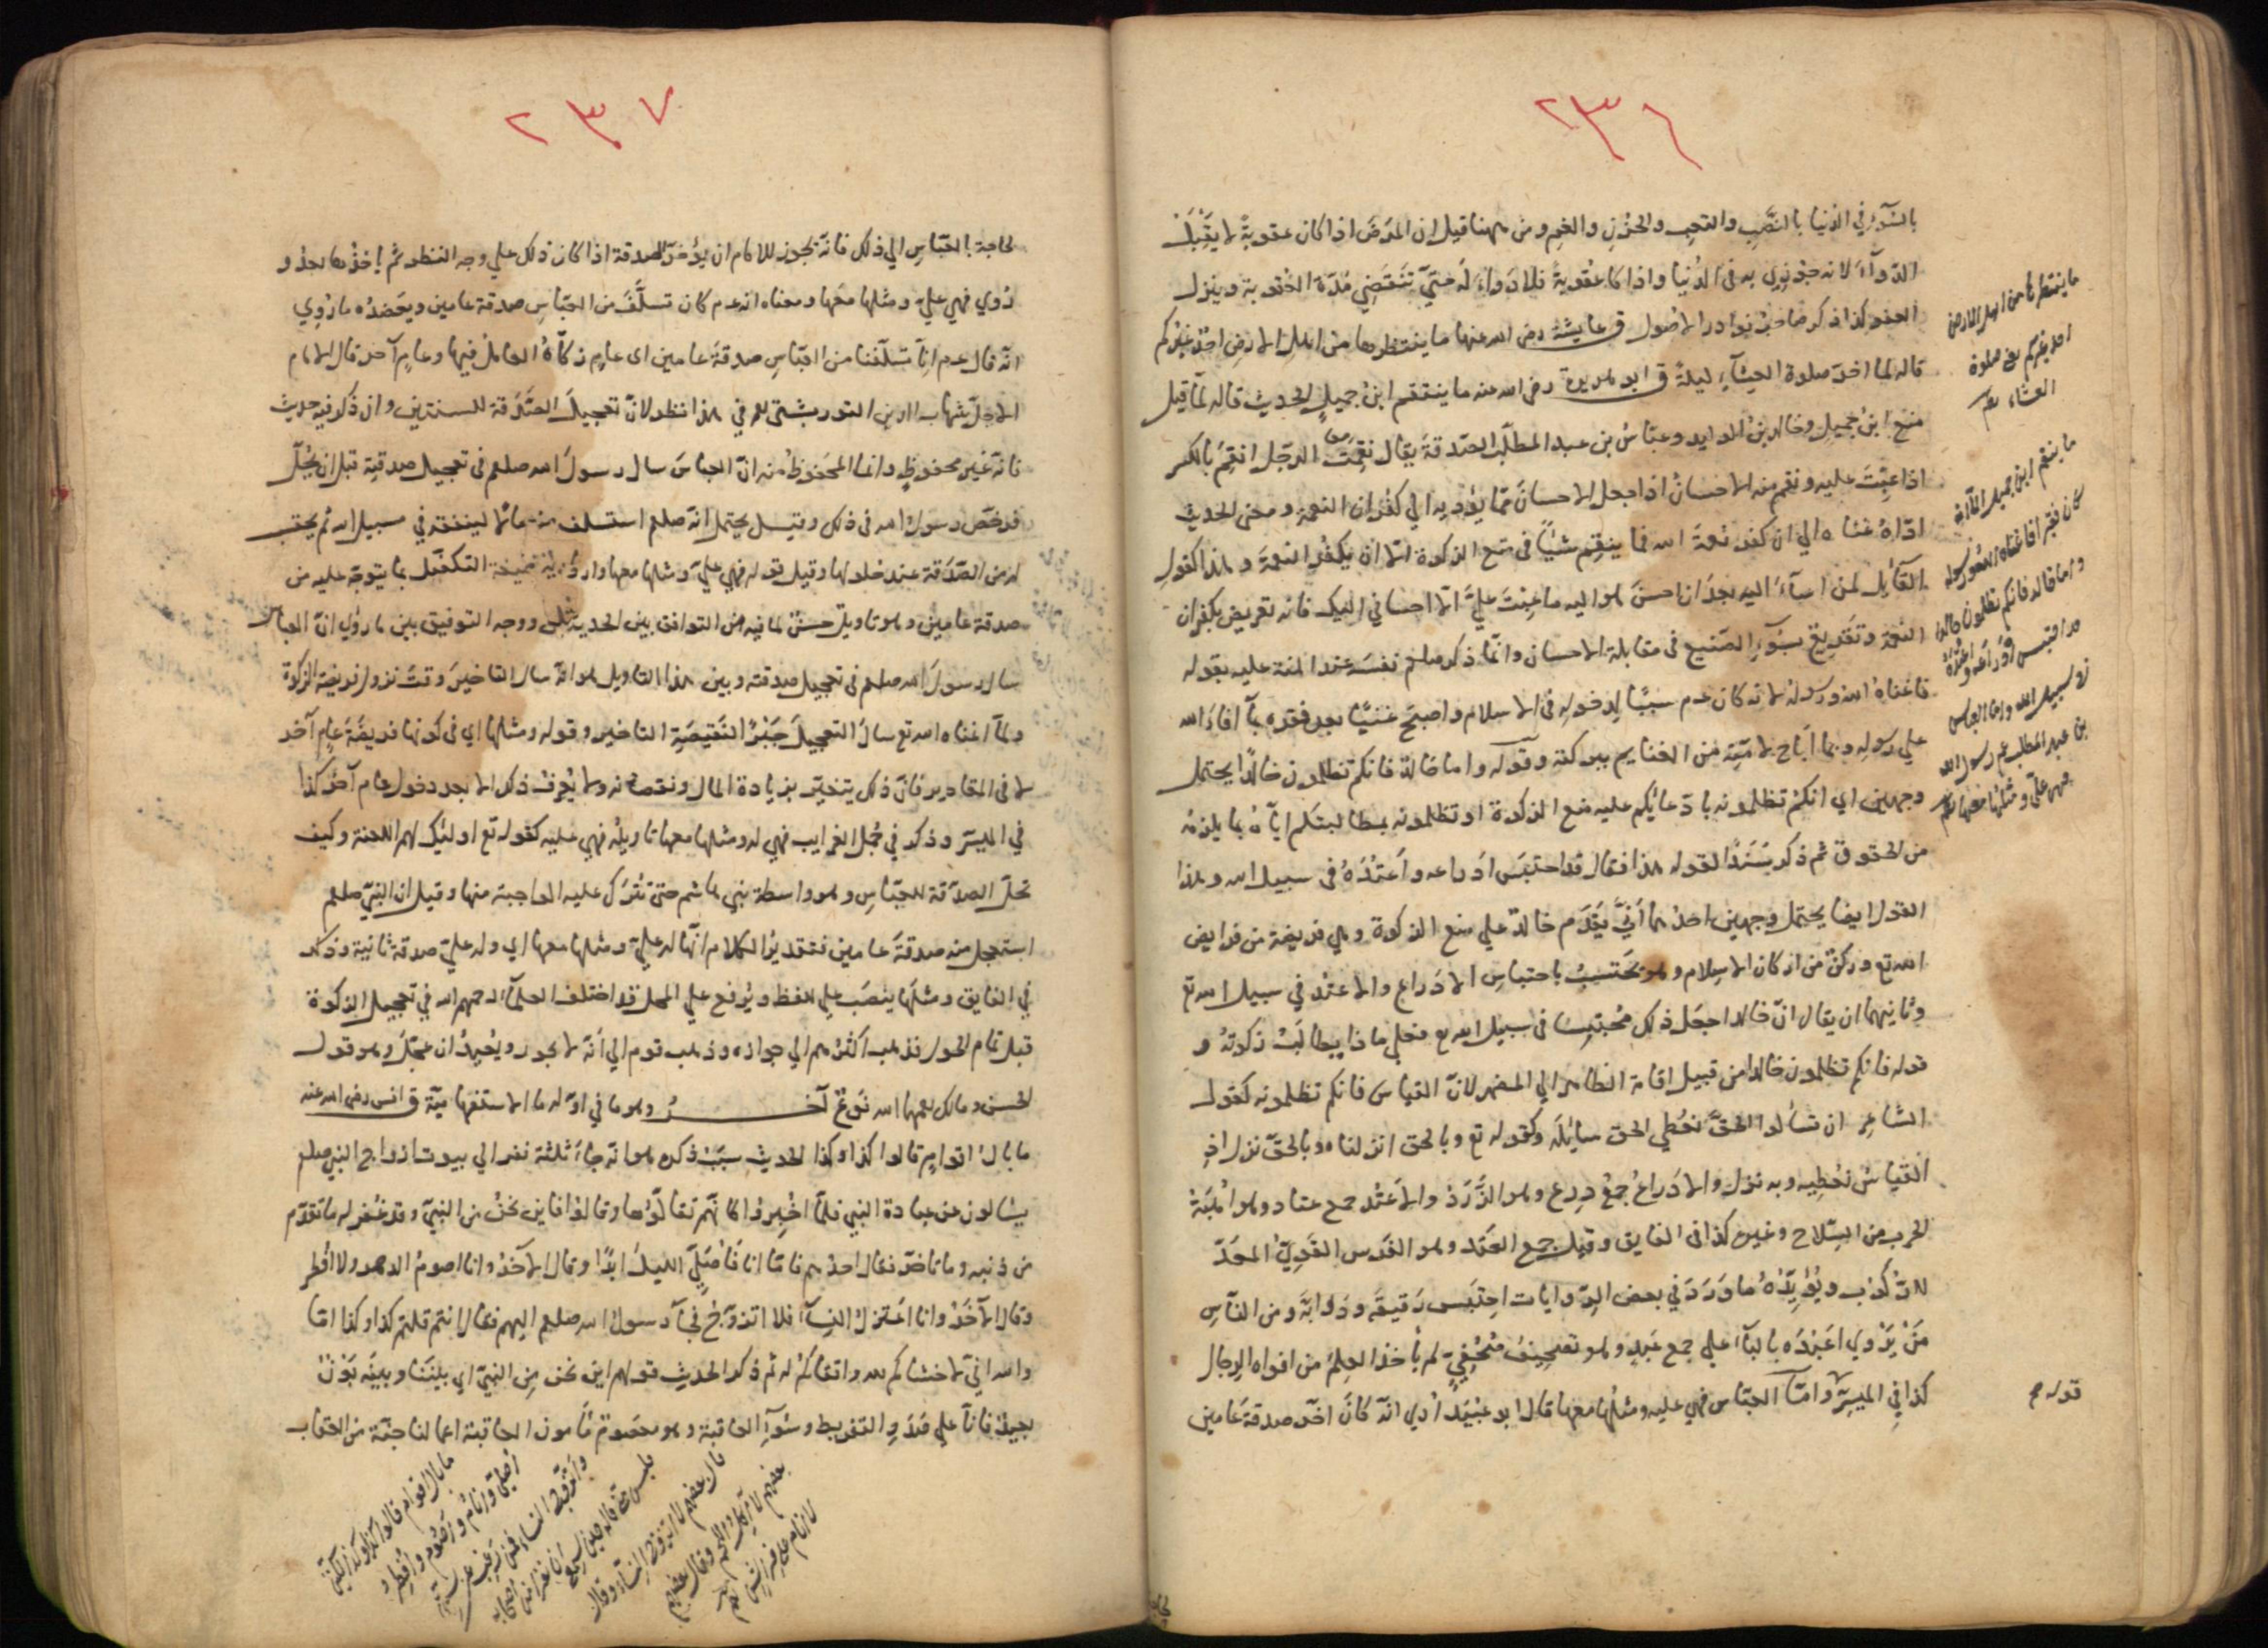 ٢٣٦
بالسوء في الدنيا بالنصب والتعب والحزن والغم ومن ههنا قيل ان المرض اذا كان عقوبة لا يقبل
الدواء لانه جوزي به في الدنيا واذا كا عقوبة فلا دواء له حتي تنقضي مدة العقوبة وينزل
العفو كذا ذكر صاحب نوادر الاصول ق عايشة رضى الله عنها ما ينتظرها من اهل الارض احد غيركم
قاله لما اخر صلوة العشاء ليلة ق ابو هريرة رضى الله عنه ما ينتقم ابن جميل الحديث قاله لما قيل
منع ابن جميل وخالد بن الوليد وعباس بن عبد المطلب الصدقة يقال نقمت الرجل انقم بالكسر
اذا عتبت عليه ونقم منه الاحسان اذا جعل الاحسان مما يؤديه الي كفران النعمة ومعنى الحديث
اداه غناه الي ان كفر نعمة الله فما ينقم شيئا في منع الزكوة الا ان يكفر النعمة وهذا كقول
القائل لمن اساء اليه بعد ان احسن هو اليه ما عبت علي الا احساني اليك فانه تعريض بكفران
النعمة وتقريع بسوء الصنيع في مقابلة الاحسان وانما ذكر صلعم نفسه عند المنة عليه بقوله
فاغناه الله ورسوله لانه كان عم سببا لدخوله في الاسلام واصبح غنيا بعد فقره بما افاء الله
علي رسوله وبما اباح لامته من الغنايم ببركته وقوله واما خالد فانكم تظلمون خالدا يحتمل
وجهين اي انكم تظلمونه بادعائكم عليه منع الزكوة او تظلمونه بمطالبتكم اياه بما يلزمه
من الحقوق ثم ذكر سندا لقوله هذا فقال قد احتبس ادراعه واعتده في سبيل الله وهذا
القول ايضا يحتمل وجهين احدهما اني يقدم خالد علي منع الزكوة وهي فريضة من فرايض
الله تع وركن من اركان الاسلام وهو يحتسب باحتباس الادراع والاعتد في سبيل الله تع
وثانيهما ان يقال ان خالدا جعل ذلك محتبسا في سبيل الله تع فعلي ماذا يطالب زكوته و
قوله فانكم تظلمون خالدا من قبيل اقامة الظاهر الي المضمر لان القياس فانكم تظلمونه كقول
الشاعر ان تسألوا الحق نعطي الحق سائله وكقوله تع وبالحق انزلناه وبالحق نزل اذ
القياس نعطيه وبه نزل والادراع جمع درع وهو الزرد والاعتد جمع عتاد وهو اهبة
الحرب من السلاح وغيره كذا في الفايق وقيل جمع العتد وهو الفرس القوي المعد
للركوب ويؤيده ما ورد في بعض الروايات احتبس رقيقه ودوابه ومن الناس
من يروي اعبده بالباء علي جمع عبد وهو تصحيف متحفي لم يأخذ العلم من افواه الرجال
كذا في الميسر واما العباس فهي عليه ومثلها معها قال ابو عبيد اري انه كان اخر صدقة عامين
ما ينتظرها من اهل الارض
احد غيركم يعني صلوة
العشاء
ما ينقم ابن جميل الا انه
كان فقيرا فاغناه الله ورسوله
واما خالد فانكم تظلمون خالدا
قد احتبس ادراعه واعتده
في سبيل الله واما العباس
بن عبد المطلب عم رسول الله
فهي علي ومثلها معها
قوله م
٢٣٧
لحاجة بالعباس الي ذلك فانه يجوز للامام ان يؤخر الصدقة اذا كان ذلك علي وجه النظر ثم يأخذها بعد و
روي فهي علي ومثلها معها ومعناه انه عم كان تسلف من العباس صدقة عامين ويعضده ما روي
انه قال عم انا تسلفنا من العباس صدقة عامين اى عام زكاة العامل فيها وعام آخر قال الامام
الاجل شهاب الدين التوربشتي في هذا نظر لان تعجيل الصدقة للسنتين وان ذكر فيه حديث
فانه غير محفوظ وانما المحفوظ منه ان العباس سال رسول الله صلعم في تعجيل صدقته قبل ان يحل
فرخص رسول الله في ذلك وقيل يحتمل انه صلعم استسلف منه مالا لينفقه في سبيل الله ثم يحتسب
له من الصدقة عند حلولها وقيل قوله فهي علي ومثلها معها وارد التكفل بما يتوجه عليه من
صدقة عامين وهو تاويل حسن لما فيه من التوافق بين الحديثين ووجه التوفيق بين ما روي ان العباس
سال رسول الله صلعم في تعجيل صدقته وبين هذا التاويل هو انه سال التاخير وقت نزول فريضة الزكوة
ولما اغناه الله تع سال التعجيل جبرا لنقيصة التاخير وقوله ومثلها اي في كونها فريضة عام آخر
لا في المقادير فان ذلك يتغير بزيادة المال ونقصانه ولا يعرف ذلك الا بعد دخول عام آخر كذا
في الميسر وذكر في مجل الغرايب فهي له ومثلها معها تاويله فهي عليه كقوله تع اولئك لهم اللعنة وكيف
تحل الصدقة للعباس وهو واسطة بني هاشم حتى تترك عليه الواجبة منها وقيل ان النبي صلعم
استعجل منه صدقة عامين فتقدير الكلام انها له علي ومثلها معها اي وله علي صدقة ثانية وذكر
في الفايق ومثلها ينصب علي اللفظ ويرفع علي المحل قد اختلف العلماء رحمهم الله في تعجيل الزكوة
قبل تمام الحول فذهب اكثرهم الي جوازه وذهب قوم الي انه لا يجوز ويعيد ان عجل وهو قول
الحسن ومالك رحمهما الله نوع آخر وهو ما في اوله ما الاستفهامية ق انس رضى الله عنه
ما بال اقوام قالوا كذا وكذا الحديث سبب ذكره هو انه جاء ثلثة نفر الي بيوت ازواج النبي صلعم
يسالون عن عبادة النبي فلما اخبروا كانهم تقالوها وقالوا فاين نحن من النبي وقد غفر له ما تقدم
من ذنبه وما تاخر فقال احدهم فاما انا فاصلي الليل ابدا وقال الآخر وانا اصوم الدهر ولا افطر
وقال الآخر وانا اعتزل النساء فلا اتزوج فجاء رسول الله صلعم اليهم فقال انتم قلتم كذا وكذا اما
والله اني لاخشاكم لله واتقاكم له ثم ذكر الحديث قولهم اين نحن من النبي اي بيننا وبينه بون
بعيد فانا علي صدد التفريط وسوء العاقبة وهو معصوم مأمون العاقبة اعمالنا جنة من العقاب
ما بال اقوام قالوا كذا وكذا لكني
اصلي وانام واصوم وافطر
واتزوج النساء فمن رغب عن سنتي
فليس مني قاله حين سمع ان نفرا من اصحابه
قال بعضهم لا اتزوج النساء وقال
بعضهم لا آكل اللحم وقال بعضهم
لا انام علي فراش